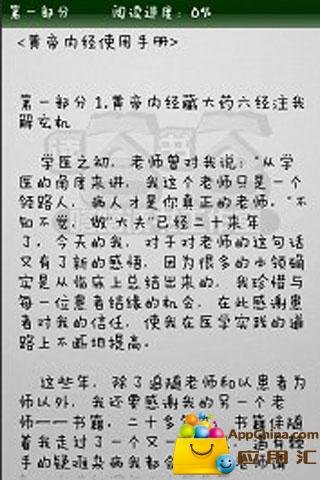 第一部分 阅读进度：0%
<黄帝内经使用手册>
第一部分 1.黄帝内经藏大药六经注我
解玄机
学医之初，老师曾对我说："从学
医的角度来讲，我这个老师只是一个
领路人，病人才是你真正的老师。"不
知不觉，做"大夫"已经二十来年
了，今天的我，对于对老师的这句话
又有了新的感悟，因为很多的小领确
实是从临床上总结出来的，我珍惜与
每一位患者结缘的机会，在此感谢患
者对我的信任，使我在医学实践的道
路上不断地提高。
这些年，除了追随老师和以患者为
师以外，我还要感谢我的另一个老
师——书籍，二十多 书籍伴随
着我走过了一个又一
手的疑难杂病我都会
AppChina.com
应用汇